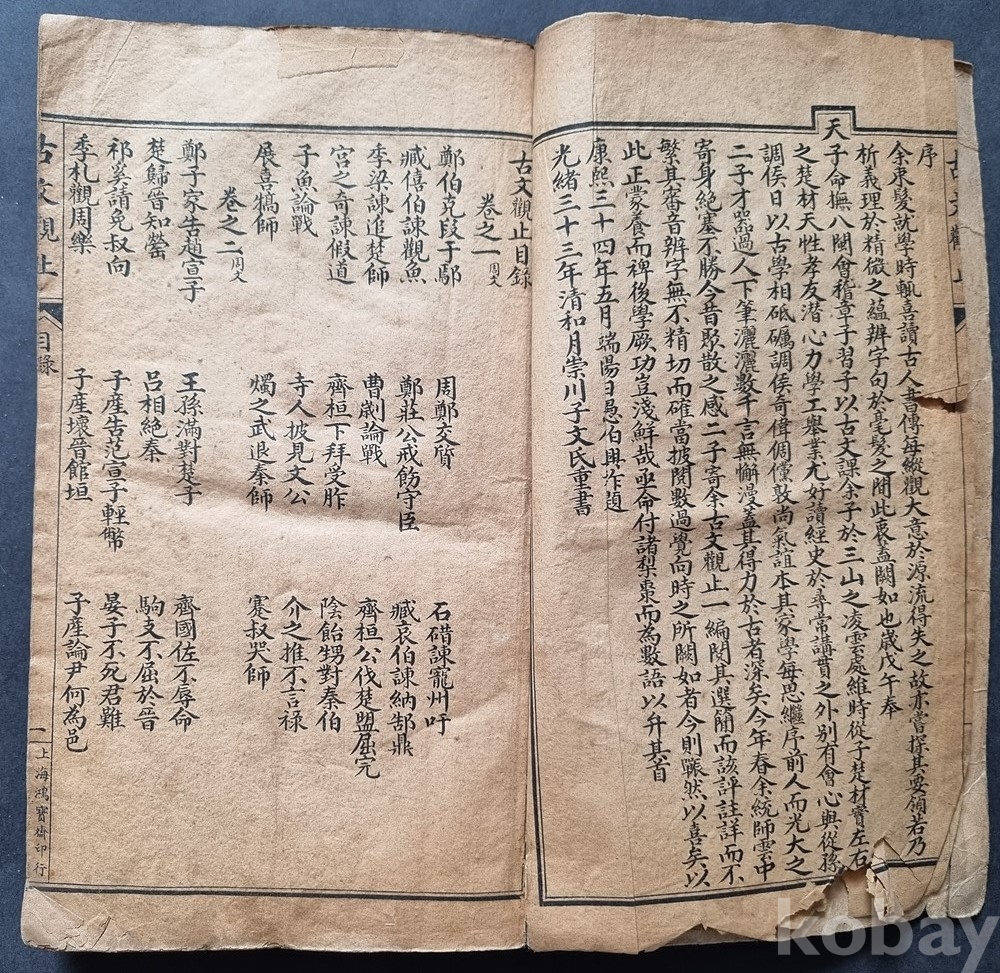 古文觀止
序
余束髮就學時輒喜讀古人書傳每縱觀大意於源流得失之故亦嘗探其要領若乃
析義理於精微之蘊辨字句於毫髮之間此衷蓋闕如也歲戊午奉
天子命撫八閩會稽章子習子以古文課余子於三山之凌雲處維時從子楚材實左右
之楚材天性孝友潛心力學工舉業尤好讀經史於尋常講貫之外別有會心與從孫
調侯日以古學相砥礪調侯奇偉倜儻敦尚氣誼本其家學每思繼序前人而光大之
二子才器過人下筆灑灑數千言無懈漫蓋其得力於古者深矣今年春余統師雲中
寄身絕塞不勝今昔聚散之感二子寄余古文觀止一編閱其選簡而該評註詳而不
繁其審音辨字無不精切而確當披閱數過覺向時之所闕如者今則囅然以喜矣以
此正蒙養而裨後學厥功豈淺鮮哉亟命付諸梨棗而為數語以弁其首
康熙三十四年五月端陽日愚伯興祚題
光緒三十三年清和月崇川子文氏重書
古文觀止目錄
卷之一 周文
鄭伯克段于鄢 周鄭交質 石碏諫寵州吁
臧僖伯諫觀魚 鄭莊公戒飭守臣 臧哀伯諫納郜鼎
季梁諫追楚師 曹劌論戰 齊桓公伐楚盟屈完
宮之奇諫假道 齊桓下拜受胙 陰飴甥對秦伯
子魚論戰 寺人披見文公 介之推不言祿
展喜犒師 燭之武退秦師 蹇叔哭師
卷之二 周文
鄭子家告趙宣子 王孫滿對楚子 齊國佐不辱命
楚歸晉知罃 呂相絕秦 駒支不屈於晉
祁奚請免叔向 子產告范宣子輕幣 晏子不死君難
季札觀周樂 子產壞晉館垣 子產論尹何為邑
古文觀止 目錄 二 上海鴻寶齋印行
kobay